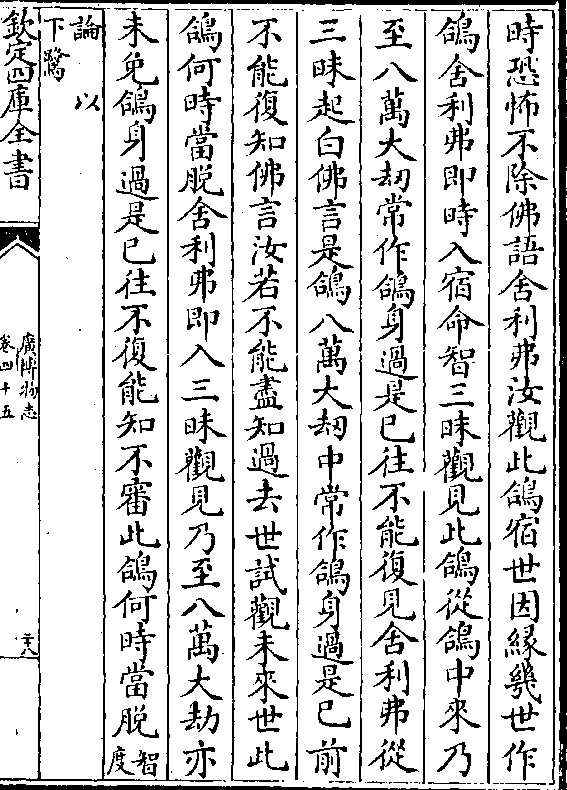 時恐怖不除佛語舍利弗汝觀此鴿宿世因緣幾世作
鴿舍利弗即時入宿命智三昧觀見此鴿從鴿中來乃
至八萬大刼常作鴿身過是已往不能復見舍利弗從
三昧起白佛言是鴿八萬大刼中常作鴿身過是已前
不能復知佛言汝若不能盡知過去世試觀未來世此
鴿何時當脫舍利弗即入三昧觀見乃至八萬大劫亦
未免鴿身過是已往不復能知不審此鴿何時當脫智度
論 以
下鷺
欽定四庫全書
廣博物志
卷四十五
二十八